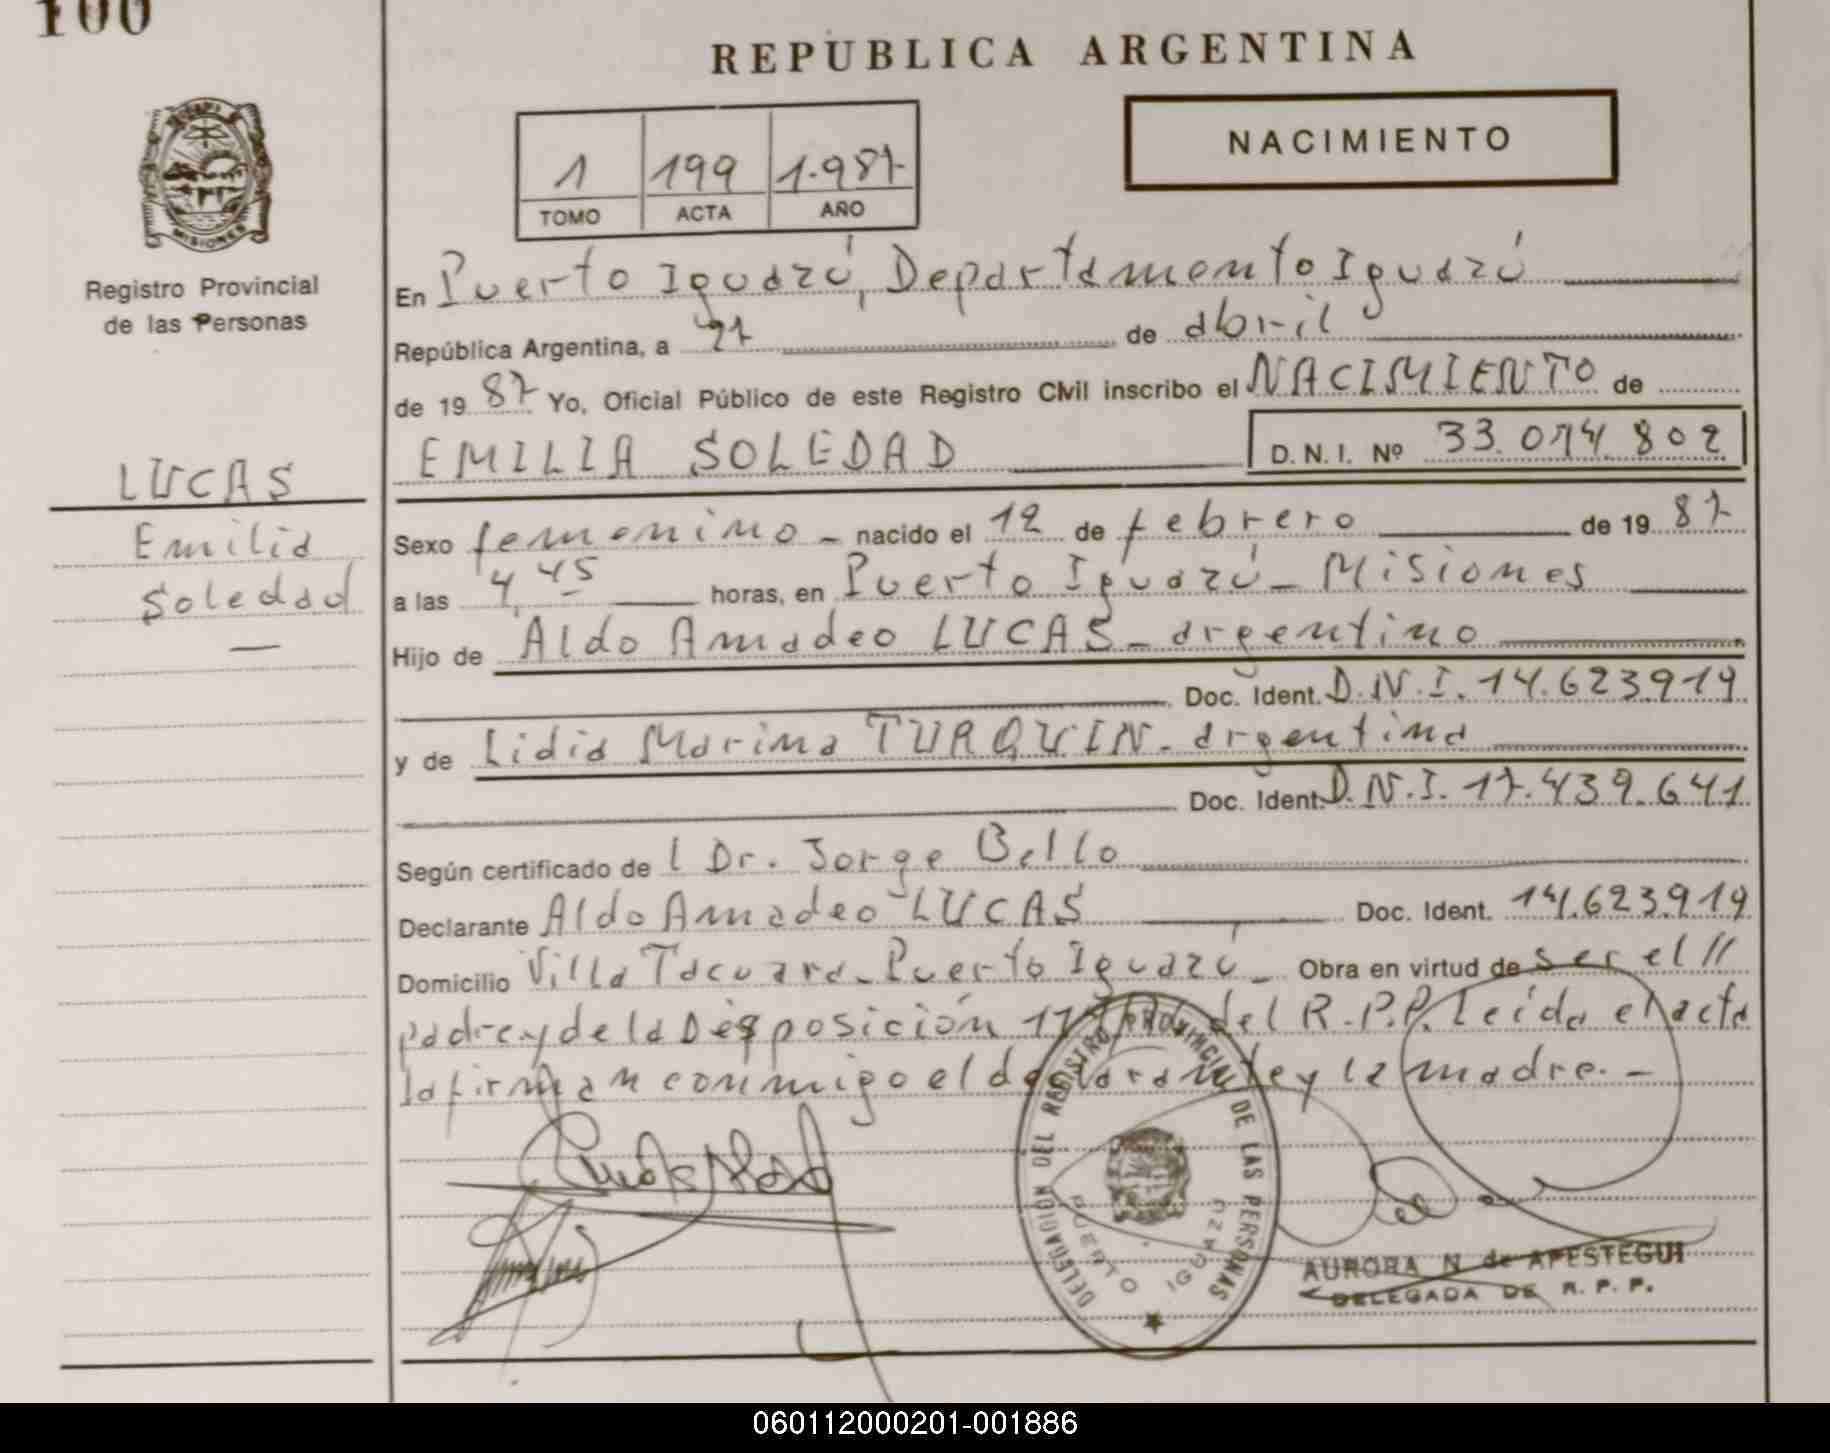 100
REPUBLICA ARGENTINA
NACIMIENTO
1 199 1.987
TOMO ACTA AÑO
MISIONES
Registro Provincial
de las Personas
En Puerto Iguazú, Departamento Iguazú
República Argentina, a 27 de abril
de 19 87 Yo, Oficial Público de este Registro Civil inscribo el NACIMIENTO de
EMILIA SOLEDAD D.N.I. Nº 33.074.802
LUCAS
Emilia
Soledad
Sexo femenino - nacido el 12 de febrero de 19 87
a las 4,45 horas, en Puerto Iguazú - Misiones
Hijo de Aldo Amadeo LUCAS - argentino
Doc. Ident. D.N.I. 14.623.919
y de Lidia Marina TURQUIN - argentina
Doc. Ident. D.N.I. 17.439.641
Según certificado de l Dr. Jorge Bello
Declarante Aldo Amadeo LUCAS Doc. Ident. 14.623.919
Domicilio Villa Tacuara - Puerto Iguazú - Obra en virtud de ser el //
padre y de la Disposición del R.P.P. Leída el acta
la firman conmigo el declarante y la madre. -
DELEGACION DEL REGISTRO PROVINCIAL DE LAS PERSONAS
PUERTO IGUAZU
AURORA N de APESTEGUI
DELEGADA DE R. P. P.
060112000201-001886